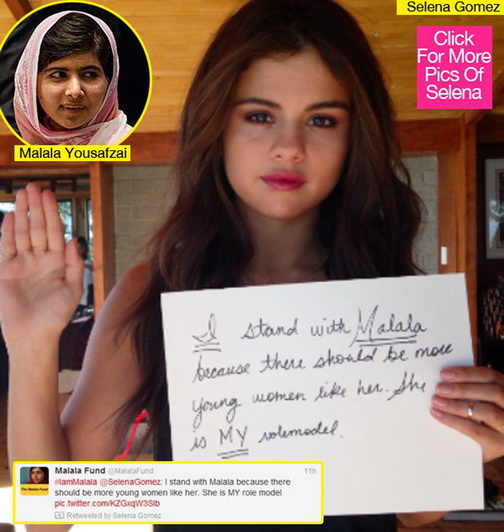 Selena Gomez
Click
For More
Pics Of
Selena
Malala Yousafzai
I stand with Malala
because there should be more
young women like her. She
is MY rolemodel.
Malala Fund @MalalaFund 11h
#IamMalala @SelenaGomez: I stand with Malala because there
should be more young women like her. She is MY role model
pic.twitter.com/KZGxqW3Slb
Retweeted by Selena Gomez
The Malala Fund